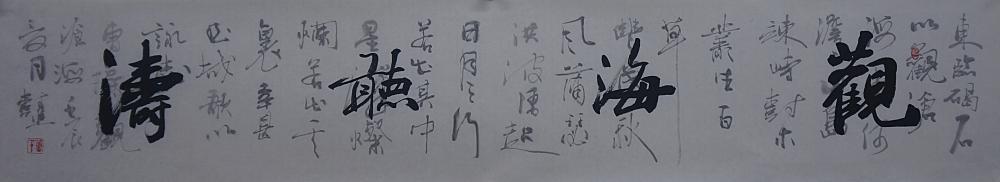 觀海聽濤
東臨碣石
以觀滄
海水何
澹島
竦峙樹木
叢生百
草
豐茂秋
風蕭瑟
洪波湧起
日月之行
若出其中
星漢燦
爛若出其
裏幸甚
至哉歌以
詠志
曹操觀
滄海壬辰
夏月